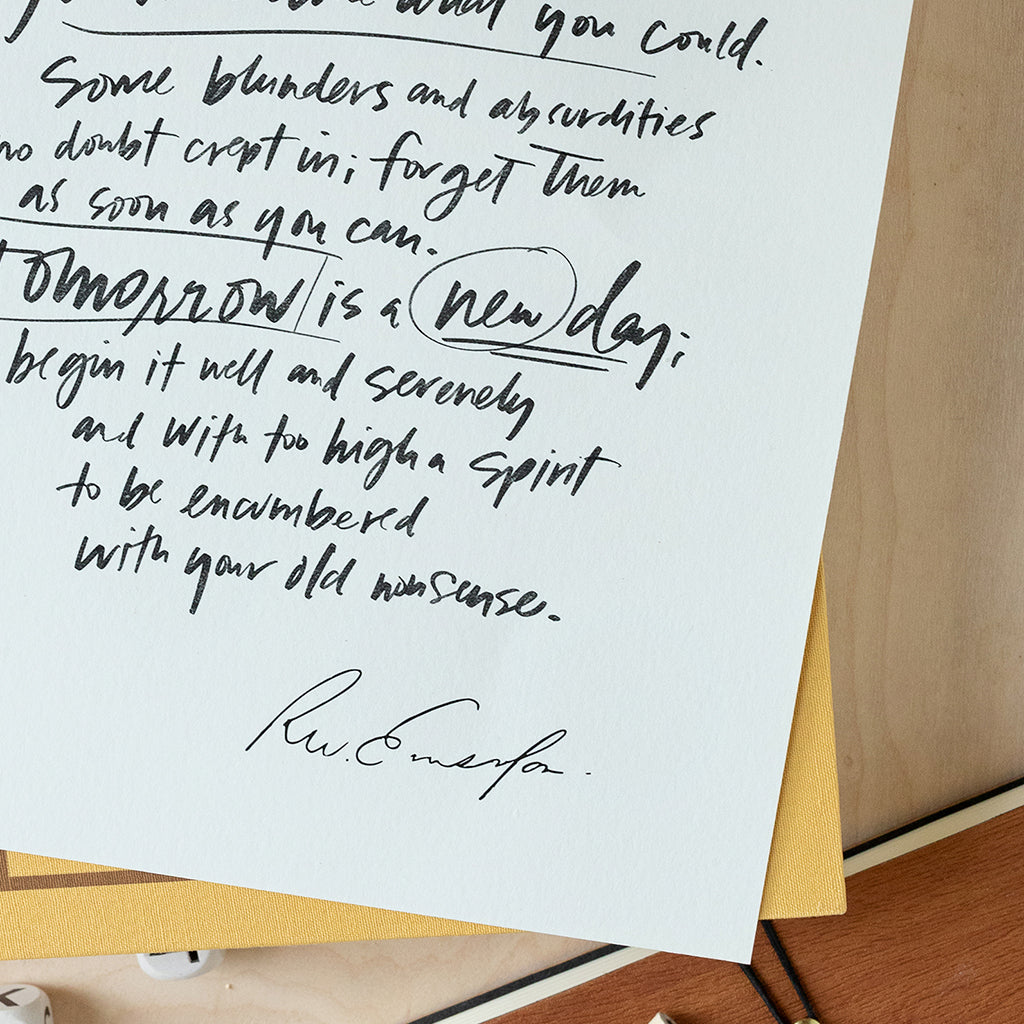 what you could.
Some blunders and absurdities
no doubt crept in; forget them
as soon as you can.
tomorrow is a new day;
begin it well and serenely
and with too high a spirit
to be encumbered
with your old nonsense.
R.W. Emerson.